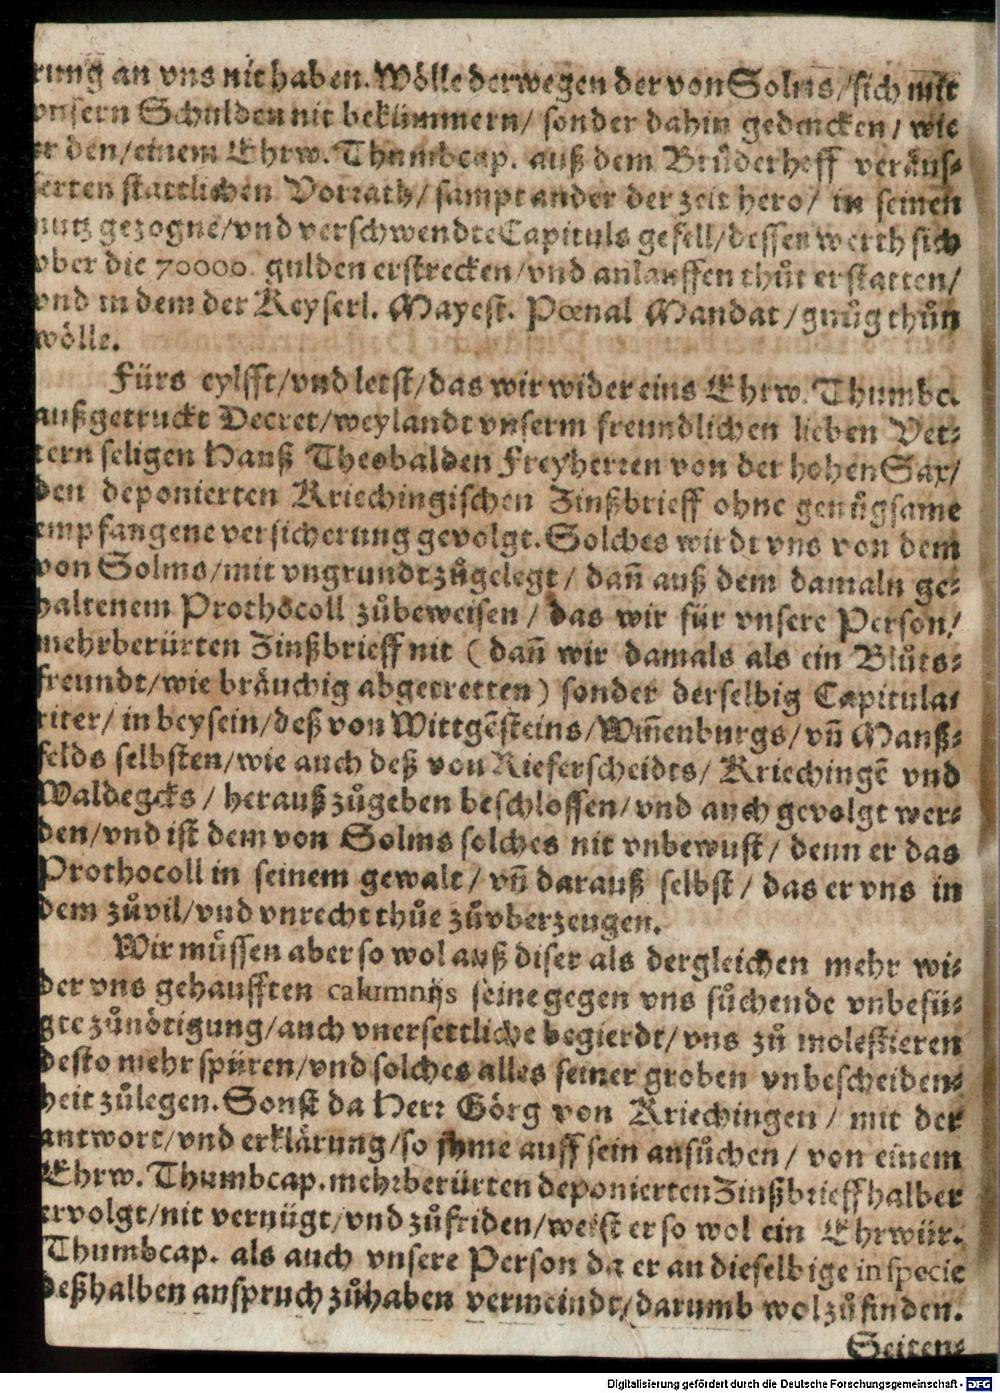 rung an vns nit haben. Wölle derwegen der von Solms/ sich mit
vnsern Schulden nit bekümmern/ sonder dahin gedencken/ wie
er den/ einem Ehrw. Thumbcap. auß dem Brůderhoff veräus-
serten stattlichen Vorrath/ sampt ander der zeit hero/ in seinen
nutz gezogne/ vnd verschwendte Capituls gefell/ dessen werth sich
vber die 70000. gulden erstrecken/ vnd anlauffen thůt erstatten/
vnd in dem der Keyserl. Mayest. Pœnal Mandat/ gnůg thůn
wölle.
Fürs eylfft/ vnd letst/ das wir wider eins Ehrw. Thumbca.
außgetruckt Decret/ weylandt vnserm freundlichen lieben Vet-
tern seligen Hanß Theobalden Freyherren von der hohen Sax/
den deponierten Kriechingischen Zinßbrieff ohne genůgsame
empfangene versicherung gevolgt. Solches wirdt vns von dem
von Solms/ mit vngrundt zůgelegt/ dañ auß dem damaln ge-
haltenem Prothocoll zůbeweisen/ das wir für vnsere Person/
mehrberürten Zinßbrieff nit (dañ wir damals als ein Blůts-
freundt/ wie bräuchig abgetretten) sonder derselbig Capitula-
riter/ in beysein/ deß von Wittgẽsteins/ Wiñenburgs/ vñ Manß-
felds selbsten/ wie auch deß von Rieferscheidts/ Kriechingẽ vnd
Waldegcks/ heraußzůgeben beschlossen/ vnd auch gevolgt wer-
den/ vnd ist dem von Solms solches nit vnbewust/ denn er das
Prothocoll in seinem gewalt/ vñ darauß selbst/ das er vns in
dem zůvil/ vnd vnrecht thůe zůvberzeugen.
Wir müssen aber so wol auß diser als dergleichen mehr wi-
der vns gehaufften calumnijs seine gegen vns sůchende vnbefü-
gte zůnötigung/ auch vnersettliche begierdt/ vns zů molestieren
desto mehr spüren/ vnd solches alles seiner groben vnbescheiden-
heit zůlegen. Sonst da Herr Görg von Kriechingen/ mit der
antwort/ vnd erklärung/ so jhme auff sein ansůchen/ von einem
Ehrw. Thumbcap. mehrberürten deponierten Zinßbrieff halber
ervolgt/ nit vernügt/ vnd zůfriden/ weist er so wol ein Ehrwür.
Thumbcap. als auch vnsere Person da er an dieselbige in specie
deßhalben anspruch zůhaben vermeindt/ darumb wol zůfinden.
Seiten-
Digitalisierung gefördert durch die Deutsche Forschungsgemeinschaft - DFG